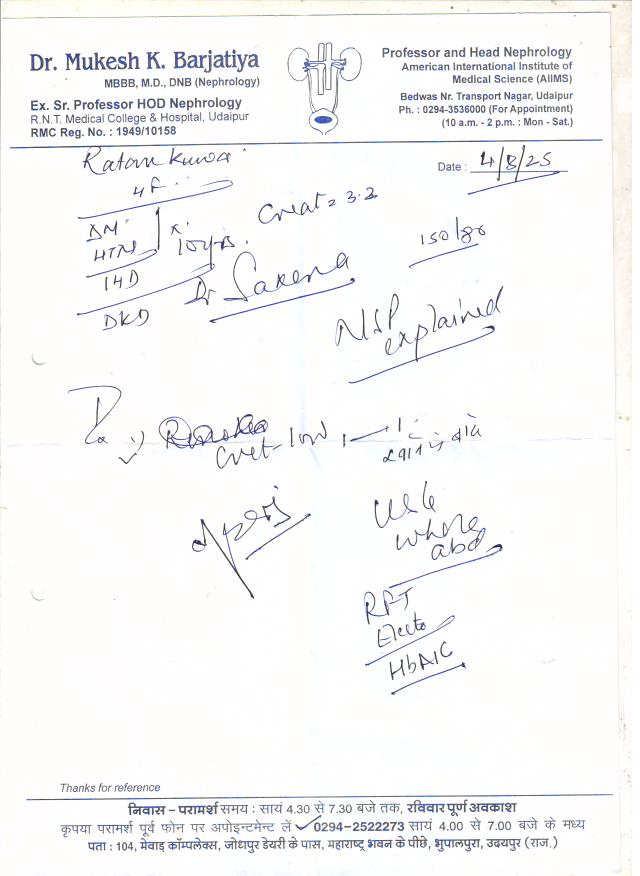 Dr. Mukesh K. Barjatiya
MBBB, M.D., DNB (Nephrology)
Ex. Sr. Professor HOD Nephrology
R.N.T. Medical College & Hospital, Udaipur
RMC Reg. No. : 1949/10158
Professor and Head Nephrology
American International Institute of
Medical Science (AIIMS)
Bedwas Nr. Transport Nagar, Udaipur
Ph. : 0294-3536000 (For Appointment)
(10 a.m. - 2 p.m. : Mon - Sat.)
Date : 4/8/25
Ratan
Creat = 3.2
DM
HTN
10 yrs.
150/80
IHD
Dr Saxena
DKD
explained
Rx
1)
USG
whole
abd
RFT
Electo
HbA1C
Thanks for reference
निवास – परामर्श समय : सायं 4.30 से 7.30 बजे तक, रविवार पूर्ण अवकाश
कृपया परामर्श पूर्व फोन पर अपोइन्टमेन्ट लें 0294-2522273 सायं 4.00 से 7.00 बजे के मध्य
पता : 104, मेवाड़ कॉम्पलेक्स, जोधपुर डेयरी के पास, महाराष्ट्र भवन के पीछे, भुपालपुरा, उदयपुर (राज.)